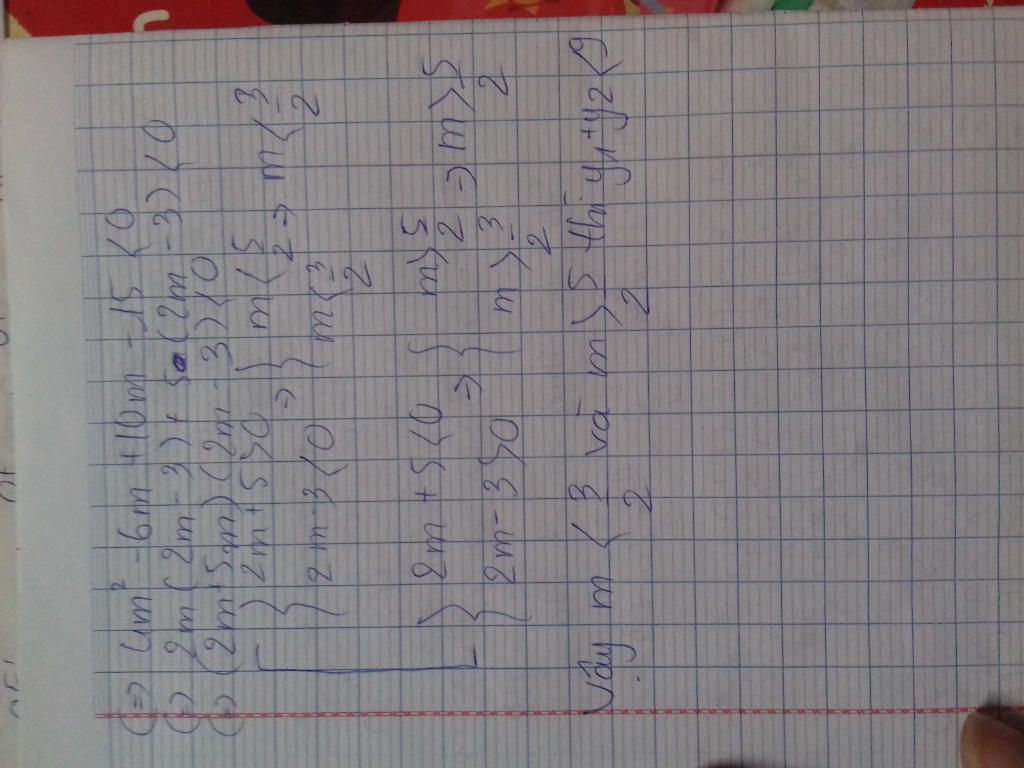 (=) 4m² - 6m + 10m - 15 < 0
(=) 2m(2m - 3) + 5(2m - 3) < 0
(=) (2m + 5m)(2m - 3) < 0
[ { 2m + 5 > 0 => { m < 5/2 => m < 3/2
{ 2m - 3 < 0 { m < 3/2
{ 2m + 5 < 0 => { m > 5/2 => m > 5/2
{ 2m - 3 > 0 { m > 3/2
Vậy m < 3/2 và m > 5/2 thì y₁ + y₂ < 9